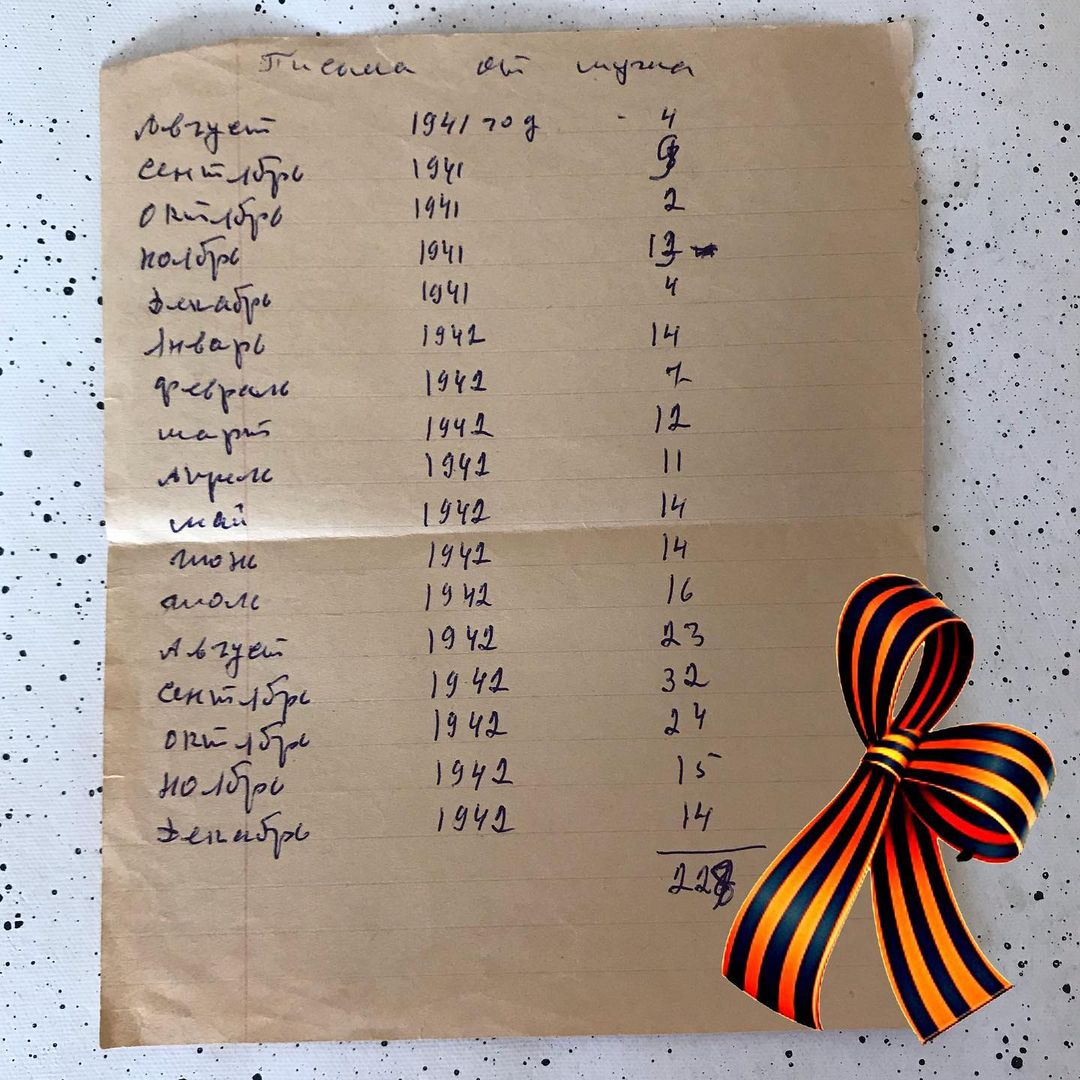 Письма от мужа
Август 1941 год - 4
сентябрь 1941 9
октябрь 1941 2
ноябрь 1941 13
декабрь 1941 4
Январь 1942 14
февраль 1942 7
март 1942 12
апрель 1942 11
май 1942 14
июнь 1942 14
июль 1942 16
Август 1942 23
сентябрь 1942 32
октябрь 1942 24
ноябрь 1942 15
декабрь 1942 14
228